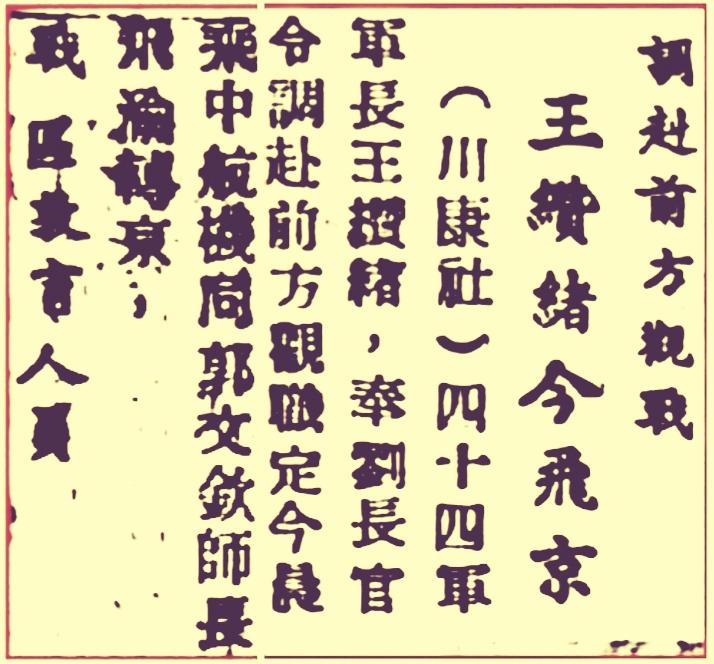 調赴前方觀戰
王纘緒今飛京
（川康社）四十四軍
軍長王纘緒，奉劉長官
令調赴前方觀戰定今晨
乘中航機同郭文欽師長
飛渝轉京，
戰區言人員